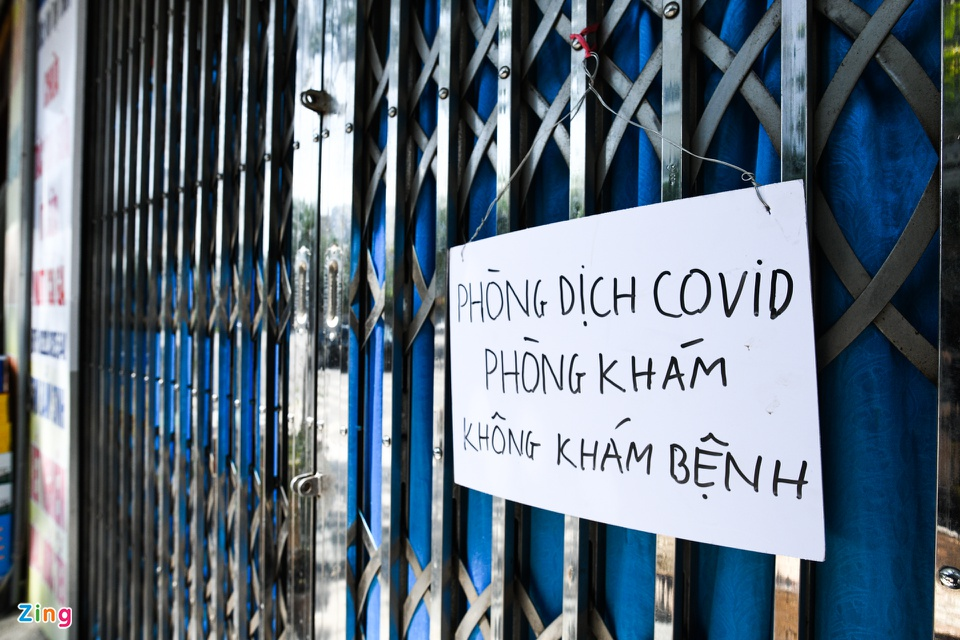 PHÒNG DỊCH COVID
PHÒNG KHÁM
KHÔNG KHÁM BỆNH
Zing